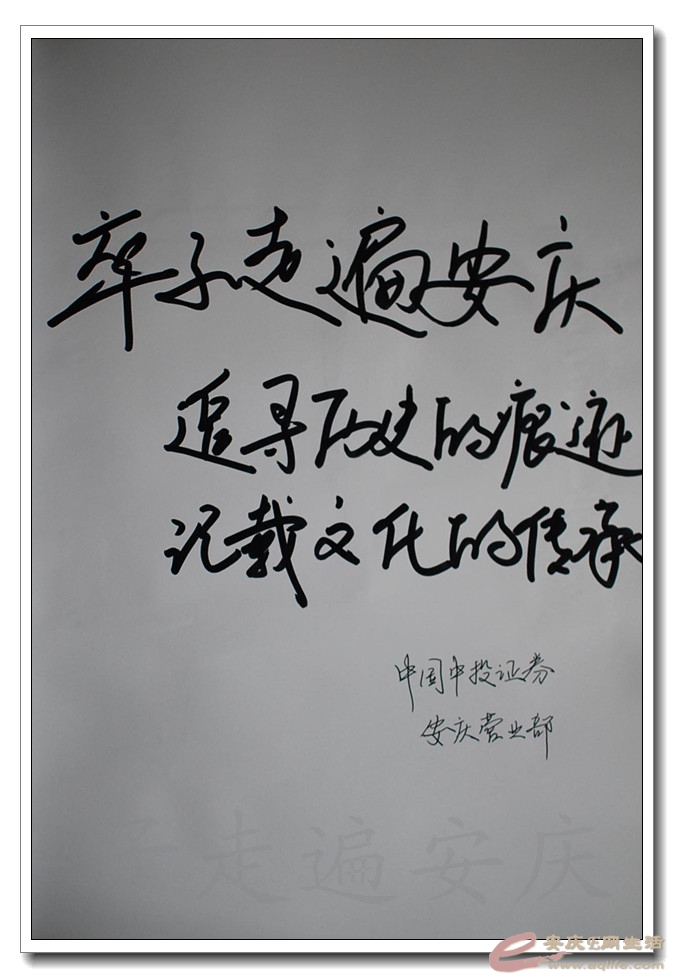 卒子走遍安庆
追寻历史的痕迹
记载文化的传承
中国中投证券
安庆营业部
子走遍安庆
安庆e网生活
www.aqlife.com